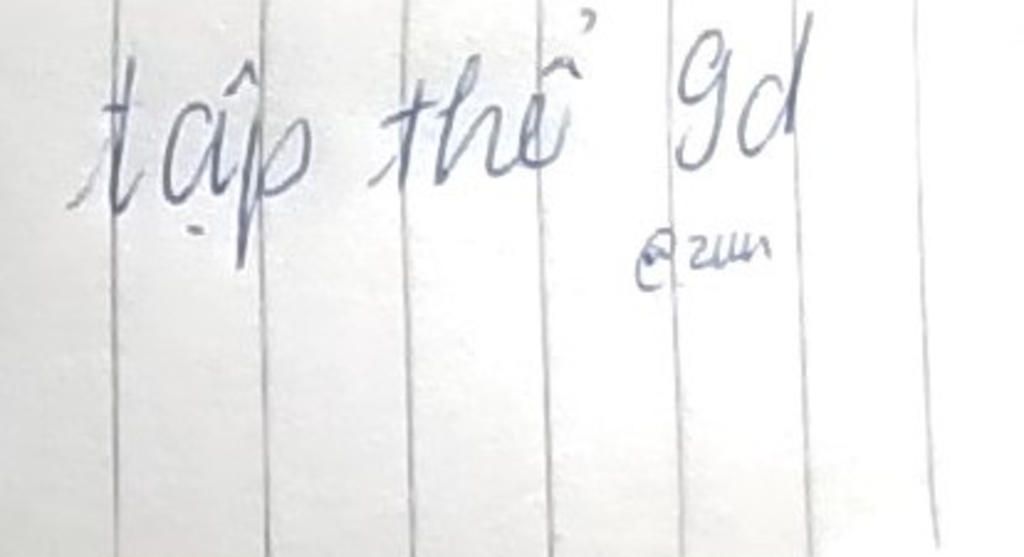 tập thể 9d
@zun